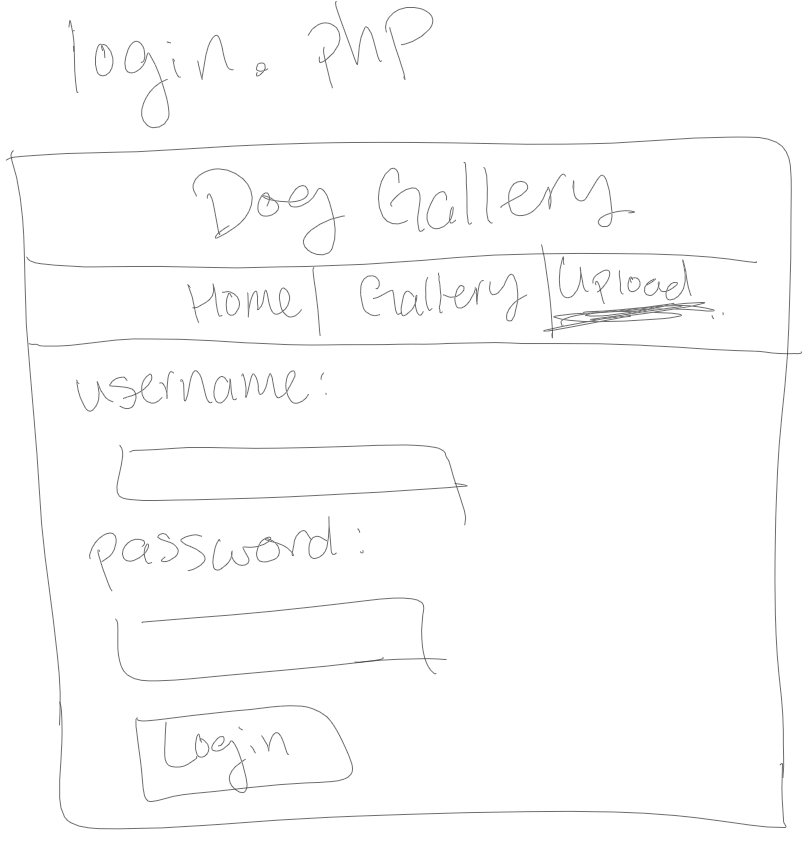 login.php
Dog Gallery
Home Gallery Upload
username:
password:
Login